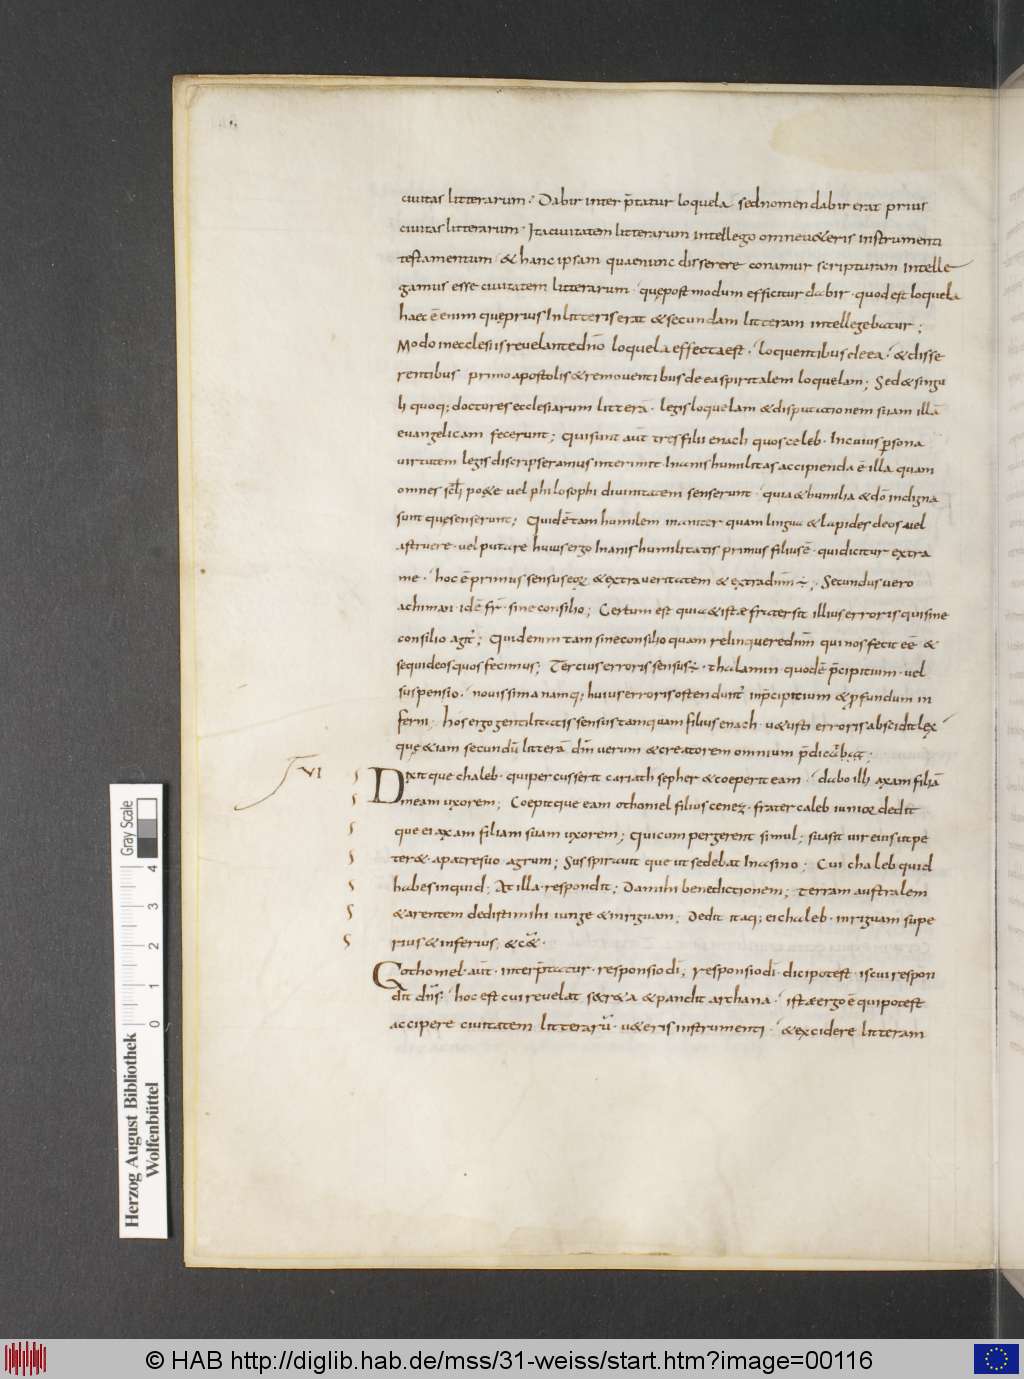 ciuitas litterarum · Dabir inter p̄tatur loquela sed nomen dabir erat prius
ciuitas litterarum · Ita ciuitatem litterarum intellego omne u&eris instrumenti
testamentum & hanc ipsam quaenunc disserere conamur scripturam intelle
gamus esse ciuitatem litterarum · quę post modum efficitur dabir · quod est loquela
haec ē enim quę prius In litteris erat & secundam litteram intellegebatur ;
Modo in ecclesiis reuelante dn̄o loquela effecta est · loquentibus de ea · & disse
rentibus primo apostolis & remouentibus de ea spiritalem loquelam ; Sed & singu
li quoq; doctores ecclesiarum litterā · legis loquelam & disputationem suam illā
euangelicam fecerunt ; Qui sunt aūt tres filii enach quos caleb · In cuius p̱sona
uirtutem legis discripseramus interimit Inanis humilitas accipienda ē illa quam
omnes scl̄i po&e uel philosophi diuinitatem senserunt · quia & humilia & dō indigna
sunt quę senserunt ; Quid ē tam humilem inaniter quam lingua & lapides deos uel
astruere · uel putare huius ergo Inanis humilitatis primus filius ē · qui dicitur extra
me · hoc ē primus sensus eoꝝ & extra ueritatem & extra dn̄m ÷ ; Secundus uero
achiman · id ē fr̄ · sine consilio ; Certum est quia & istę frater sit illius erroris qui sine
consilio agit̄ ; Quid enim tam sine consilio quam relinquere dn̄m qui nos fecit eē &
sequi deos quos fecimus ; Tercius erroris sensus ÷ · thalamin · quod ē p̄cipitium · uel
suspensio · nouissima namq; huius erroris ostendunt̄ inp̄cipitium & p̱fundum in
ferni ; hos ergo gentilitatis sensus tamquam filius enach · u&usti erroris abscidit lex
quę &iam secundū litterā dn̄m uerum & creatorem omnium p̄dicabat ;
VI
Dixit que chaleb · qui percusserit cariath sepher & coeperit eam · dabo illi axam filiā
meam uxorem ; Coepit que eam othoniel filios cenez · frater caleb iunior dedit
que ei axam filiam suam uxorem ; Qui cum pergerent simul ; suasit uir eius ut pe
ter& · a patre suo agrum ; Suspirauit que ut sedebat In asino ; Cui chaleb quid
habes inquid ; At illa · respondit ; Da mihi benedictionem ; terram australem
& arentem dedisti mihi iunge & inriguam ; Dedit itaq; ei chaleb · inriguam supe
rius & inferius ; & c&̄ ·
Gothoniel · aūt · interp̄tatur · responsio dī ; responsio dī · dici potest · is cui respon
dit dn̄s · hoc est cui reuelat secreta & pandit archana · istę ergo ē qui potest
accipere ciuitatem litterarū · u&eris instrumenti · & excidere litteram
Herzog August Bibliothek
Wolfenbüttel
Gray Scale
0 1 2 3 4
© HAB http://diglib.hab.de/mss/31-weiss/start.htm?image=00116